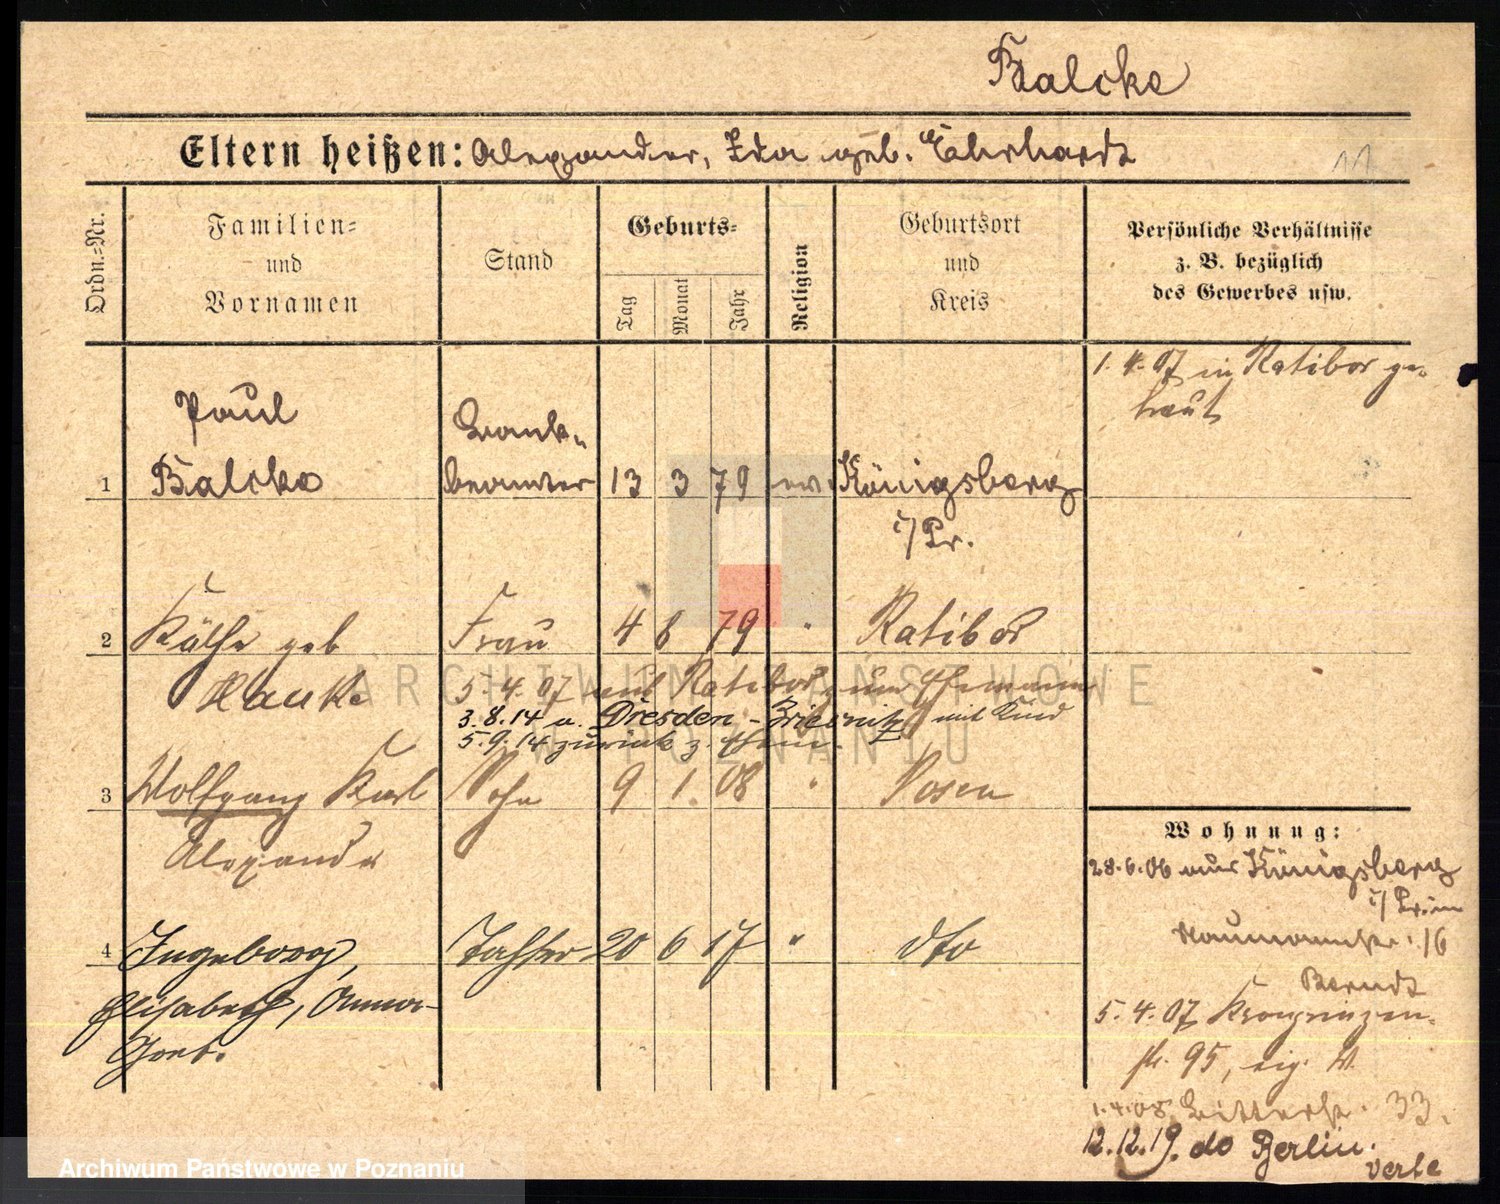 Balcke
Eltern heißen: Alexander, Ida geb. Ehrhardt
11
Ordn.-Nr.
Familien-
und
Vornamen
Stand
Geburts-
Tag
Monat
Jahr
Religion
Geburtsort
und
Kreis
Persönliche Verhältnisse
z. B. bezüglich
des Gewerbes usw.
1. 4. 07 in Ratibor ge-
traut
1 Paul
Balcke
Bank-
beamter
13 3 79 ev. Königsberg
i/Pr.
2 Käthe geb Frau 4 8 79 " Ratibor
Hauke
5. 4. 07 aus Ratibor zum Ehemann
3. 8. 14 a. Dresden - mit Kind
5. 9. 14 zurück z. Ehem.
3 Wolfgang Karl Sohn 9 1. 08 " Posen
Alexander
4 Ingeborg, Tochter 20 6 17 " dto
Elisabeth, Anna-
Wohnung:
28. 6. 06 aus Königsberg
i/Pr. in
Naumannstr. 16
Berndt
5. 4. 07 Kronprinzen-
str. 95, eig. W.
1. 4. 08 Ritterstr. 33.
12. 12. 19. do Berlin.
verte
ARCHIWUM PAŃSTWOWE
W POZNANIU
Archiwum Państwowe w Poznaniu